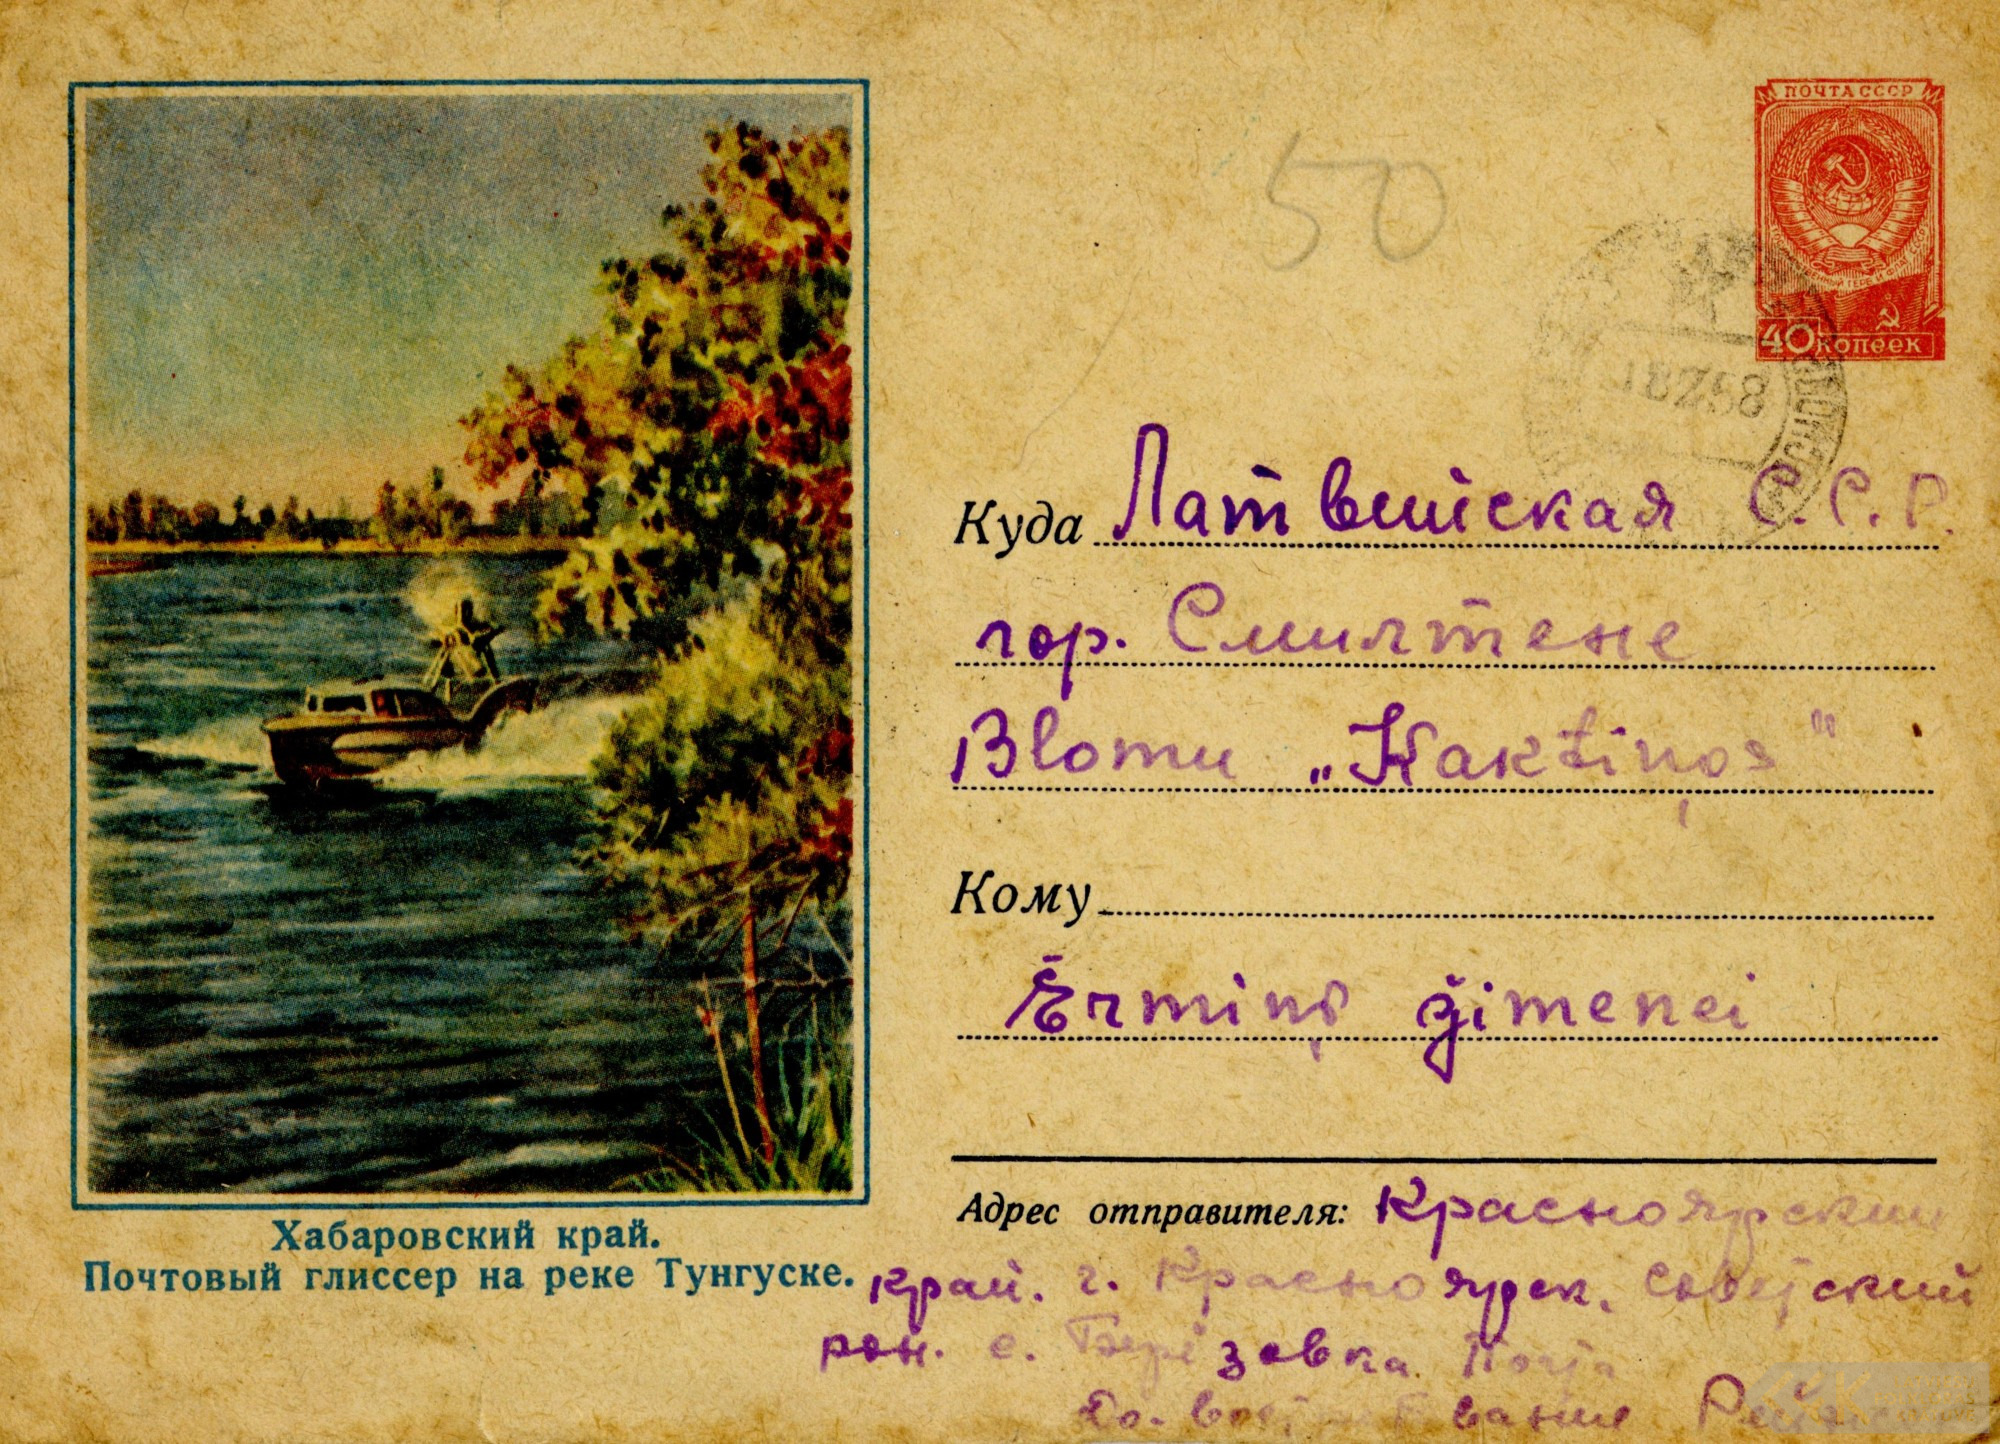 ПОЧТА СССР
40 копеек
50
18 2 58
Куда Латвийская С.С.Р.
гор. Смилтене
Blomu „Kaktiņos"
Кому
Ērmiņu ģimenei
Адрес отправителя: Красноярский
край. г. Красноярск. Советский
рон. с. Берёзовка
До. вос
Хабаровский край.
Почтовый глиссер на реке Тунгуске.